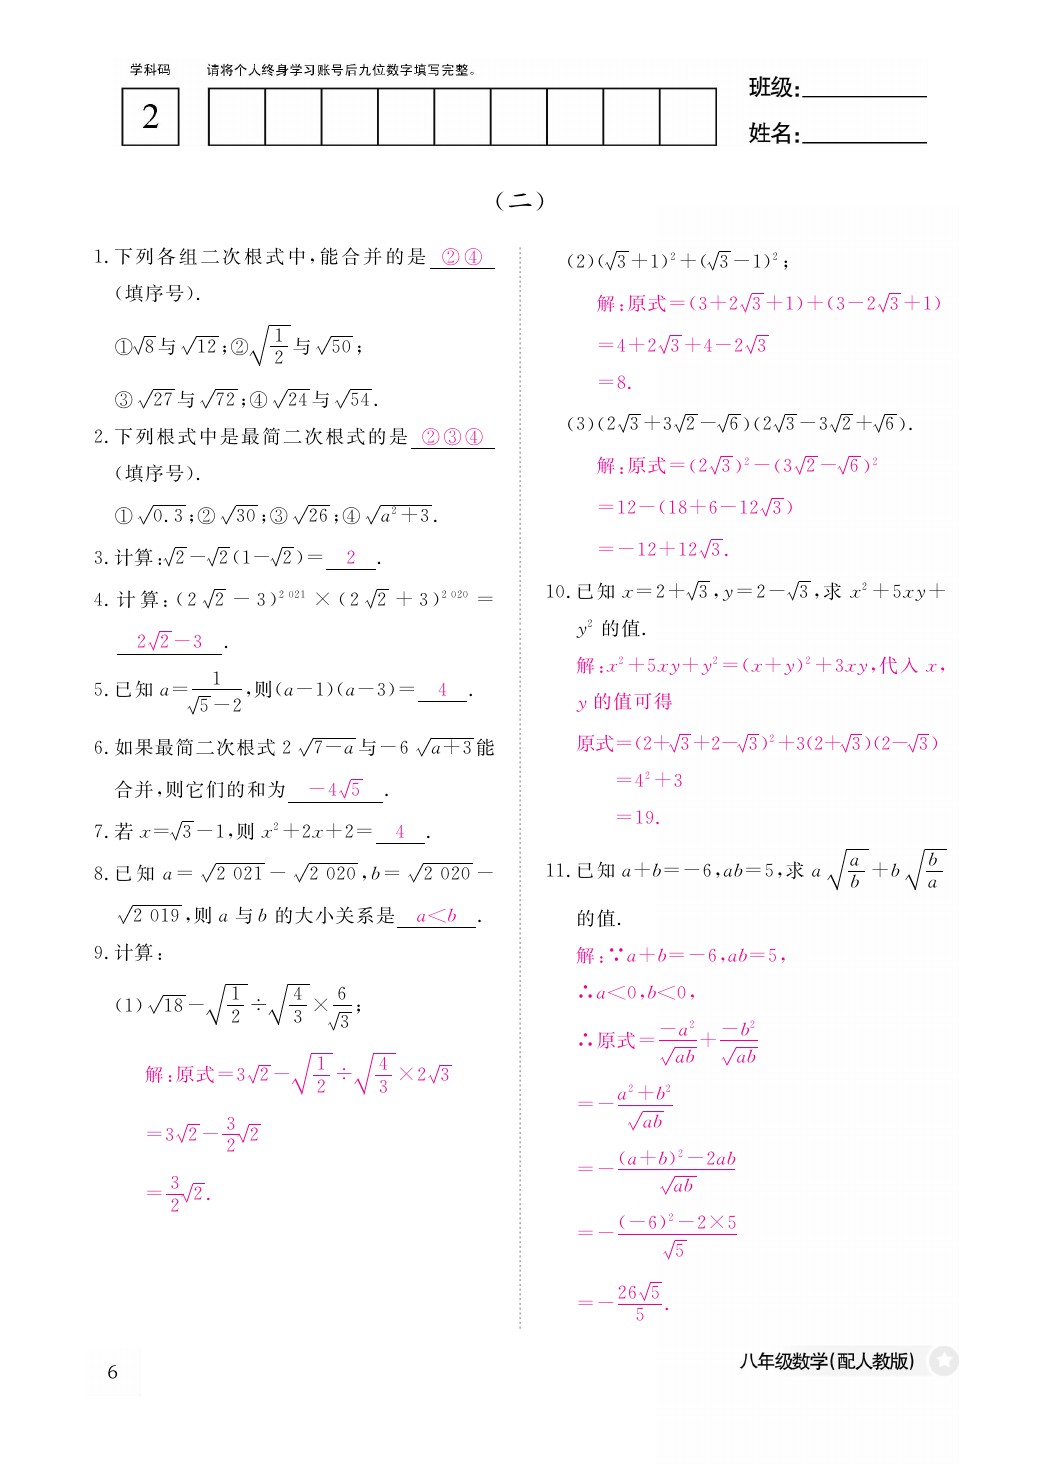 学科码 请将个人终身学习账号后九位数字填写完整。
2
班级:
姓名:
(二)
1. 下列各组二次根式中,能合并的是 ②④
(填序号).
①√8与√12;②√(1/2)与√50;
③√27与√72;④√24与√54.
2. 下列根式中是最简二次根式的是 ②③④
(填序号).
①√0.3;②√30;③√26;④√(a²+3).
3. 计算:√2-√2(1-√2)= 2 .
4. 计算:(2√2-3)²⁰²¹×(2√2+3)²⁰²⁰=
2√2-3 .
5. 已知a=1/(√5-2),则(a-1)(a-3)= 4 .
6. 如果最简二次根式2√(7-a)与-6√(a+3)能
合并,则它们的和为 -4√5 .
7. 若x=√3-1,则x²+2x+2= 4 .
8. 已知a=√2 021-√2 020,b=√2 020-
√2 019,则a与b的大小关系是 a<b .
9. 计算:
(1)√18-√(1/2)÷√(4/3)×6/√3;
解:原式=3√2-√(1/2)÷√(4/3)×2√3
=3√2-3/2√2
=3/2√2.
(2)(√3+1)²+(√3-1)²;
解:原式=(3+2√3+1)+(3-2√3+1)
=4+2√3+4-2√3
=8.
(3)(2√3+3√2-√6)(2√3-3√2+√6).
解:原式=(2√3)²-(3√2-√6)²
=12-(18+6-12√3)
=-12+12√3.
10. 已知x=2+√3,y=2-√3,求x²+5xy+
y²的值.
解:x²+5xy+y²=(x+y)²+3xy,代入x,
y的值可得
原式=(2+√3+2-√3)²+3(2+√3)(2-√3)
=4²+3
=19.
11. 已知a+b=-6,ab=5,求a√(a/b)+b√(b/a)
的值.
解:∵a+b=-6,ab=5,
∴a<0,b<0,
∴原式=-a²/√ab+-b²/√ab
=-(a²+b²)/√ab
=-((a+b)²-2ab)/√ab
=-((-6)²-2×5)/√5
=-26√5/5.
6
八年级数学(配人教版)